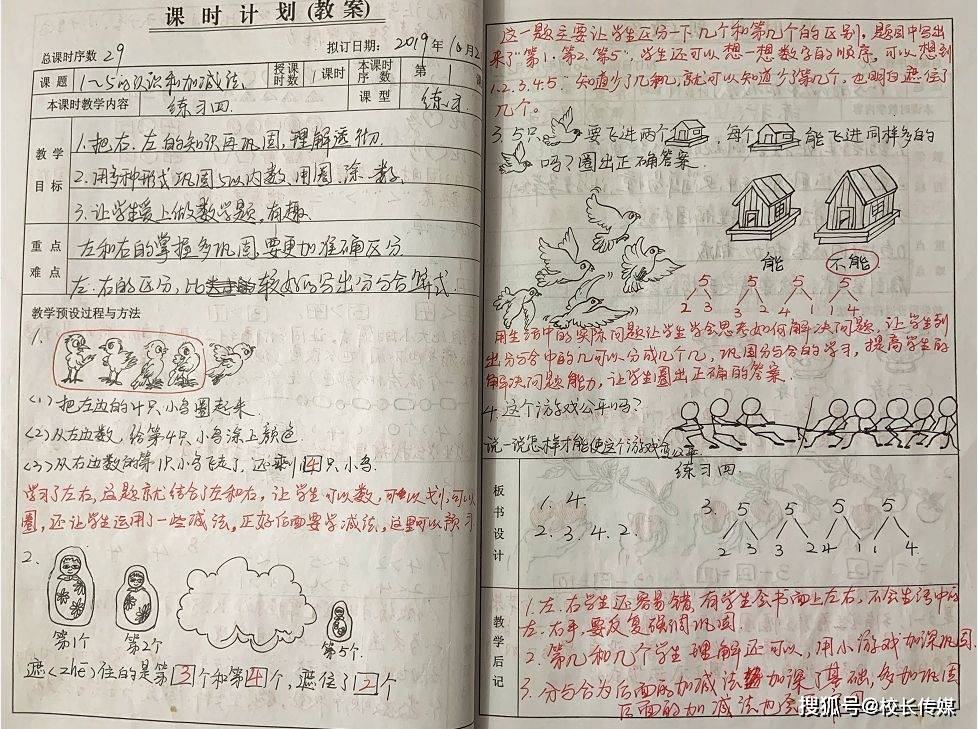 课 时 计 划 (教 案)
总课时序数 29 拟订日期: 2019年10月2
课 题 1~5的认识和加减法 授课时数 1课时 本课时序 数 第 1
本课时教学内容 练习四. 课 型 练习.
教 学 目 标
1.把右、左的知识再巩固,理解透彻.
2.用多种形式巩固5以内数,用圈、涂、数.
3.让学生爱上做数学题,有趣.
重 点
左和右的掌握多巩固,要更加准确区分
难 点
左、右的区分,比较好的写出分与合算式.
教学预设过程与方法
1.
(1) 把左边的4只小鸟圈起来.
(2) 从左边数,给第4只小鸟涂上颜色
(3) 从右边数的第1只小鸟飞走了,还剩4只小鸟.
学习了左右,这题就结合了左和右,让学生可以数,可以划,可以
圈,还让学生运用了一些减法,正好后面要学减法,这里可以预习
2.
第1个 第2个 第5个.
遮<zhē>住的是第3个和第4个,遮住了2个
这一题主要让学生区分一下几个和第几个的区别,题目中写出
来了第1、第2、第5,学生还可以想一想数字的顺序,可以想到
1.2.3.4.5.知道少了几和几,就可以知道少了第几个,也明白遮住了
几个。
3. 5只 要飞进两个 ,每个 能飞进同样多的
吗?圈出正确答案.
能 不能
5 5 5 5
2 3 3 2 4 1 1 4
用生活中的实际问题让学生学会思考如何解决问题,让学生列
出分与合中的几可以分成几个几,巩固分与合的学习,提高学生的
解决问题能力,让学生圈出正确的答案.
4.这个游戏公平吗?
说一说怎样才能使这个游戏变公平.
练习四
板 书 设 计
1. 4. 3. 5 5 5 5
2. 3. 4. 2. 2 3 3 2 4 1 1 4
教 学 后 记
1.左、右学生还容易错,有学生会书面上左右,不会生活中的
左、右手,要反复强调巩固.
2.第几和几个学生理解还可以,用小游戏加深巩固.
3.分与合为后面的加减法加深了基础,多加巩固
后面的加减法
搜狐号@校长传媒